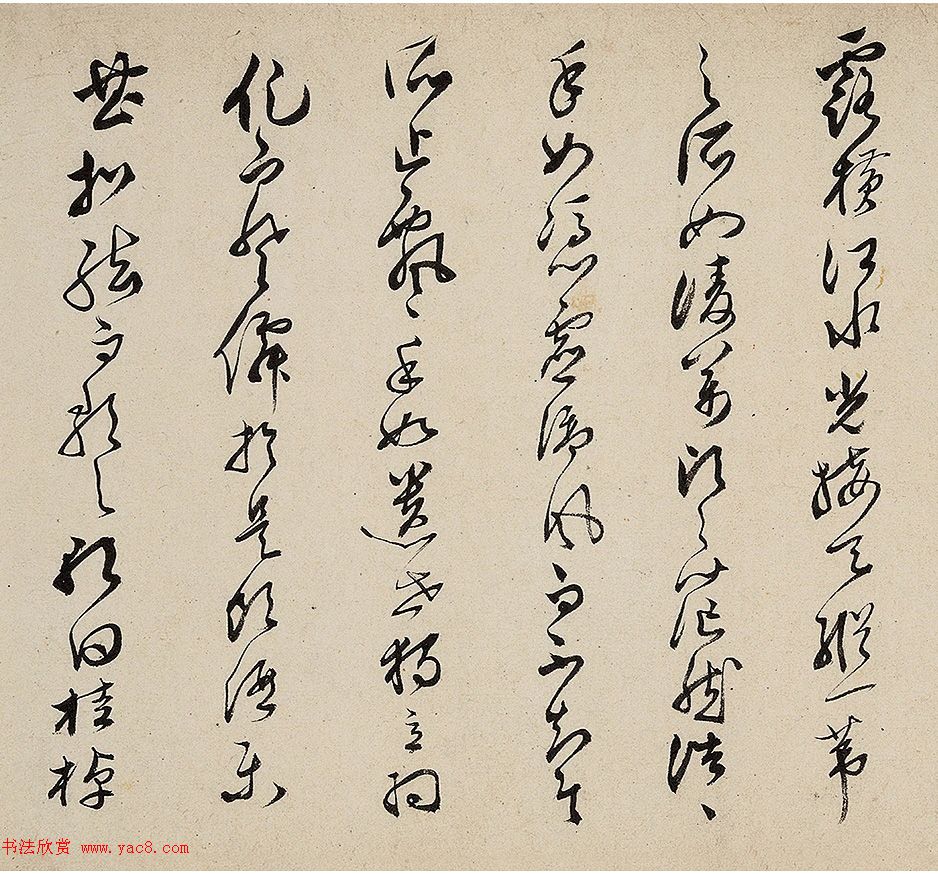 露橫江水光接天縱一葦
之所如凌萬頃之茫然浩〻
乎如憑虛御風而不知其
所止飄〻乎如遺世獨立羽
化而登僊於是飲酒樂
甚扣舷而歌之歌曰桂棹
书法欣赏 www.yac8.com